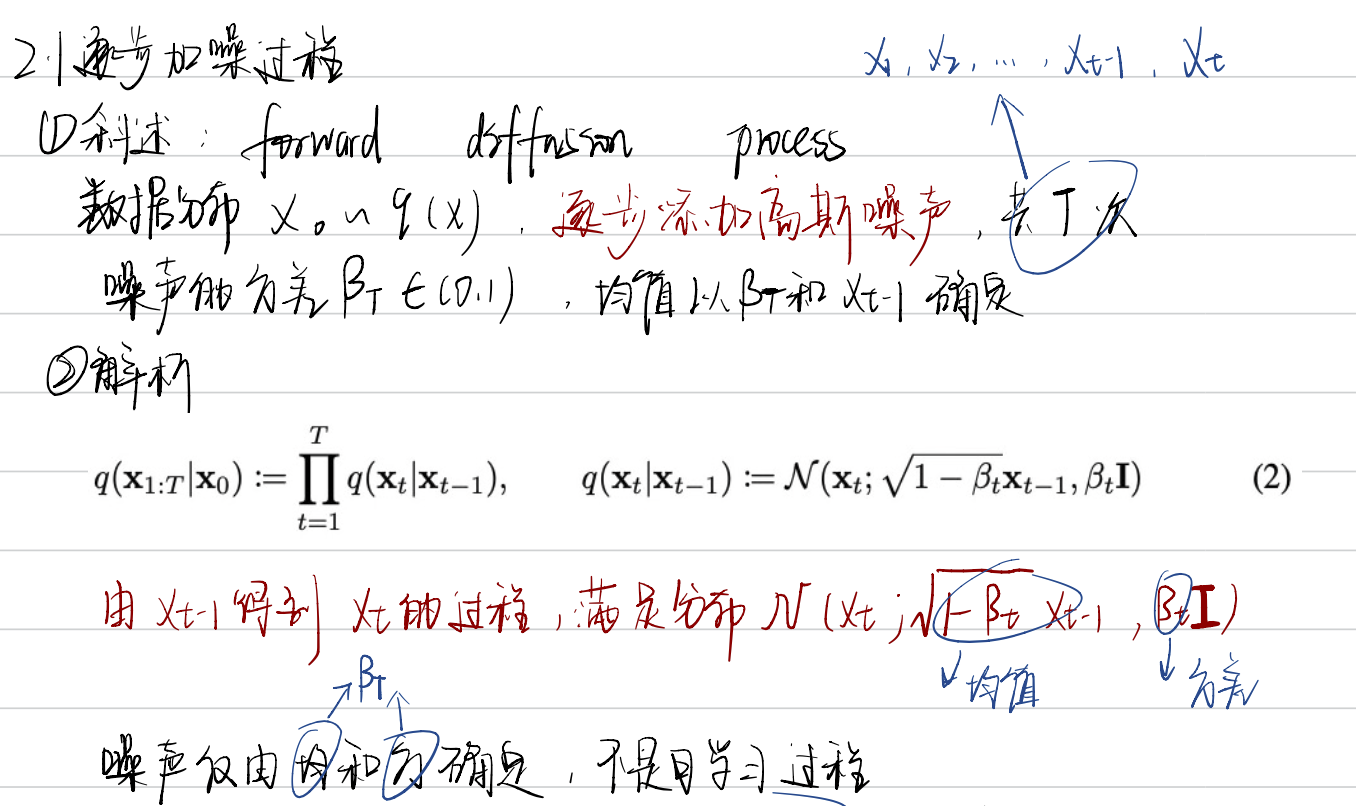 2.1 逐步加噪过程
x₁, x₂, ..., x_{t-1}, x_t
① 叙述: forward diffusion process
数据分布 x₀ ~ q(x), 逐步添加高斯噪声, 共 T 次
噪声的方差 β_T ∈ (0,1), 均值以 β_T 和 x_{t-1} 确定
② 解析
q(x_{1:T}|x_0) := ∏_{t=1}^{T} q(x_t|x_{t-1}), q(x_t|x_{t-1}) := N(x_t; √(1 − β_t) x_{t-1}, β_t I) (2)
由 x_{t-1} 得到 x_t 的过程, 满足分布 N(x_t; √(1-β_t) x_{t-1}, β_t I)
β_T 均值 方差
噪声仅由均和方确定, 不是学习过程